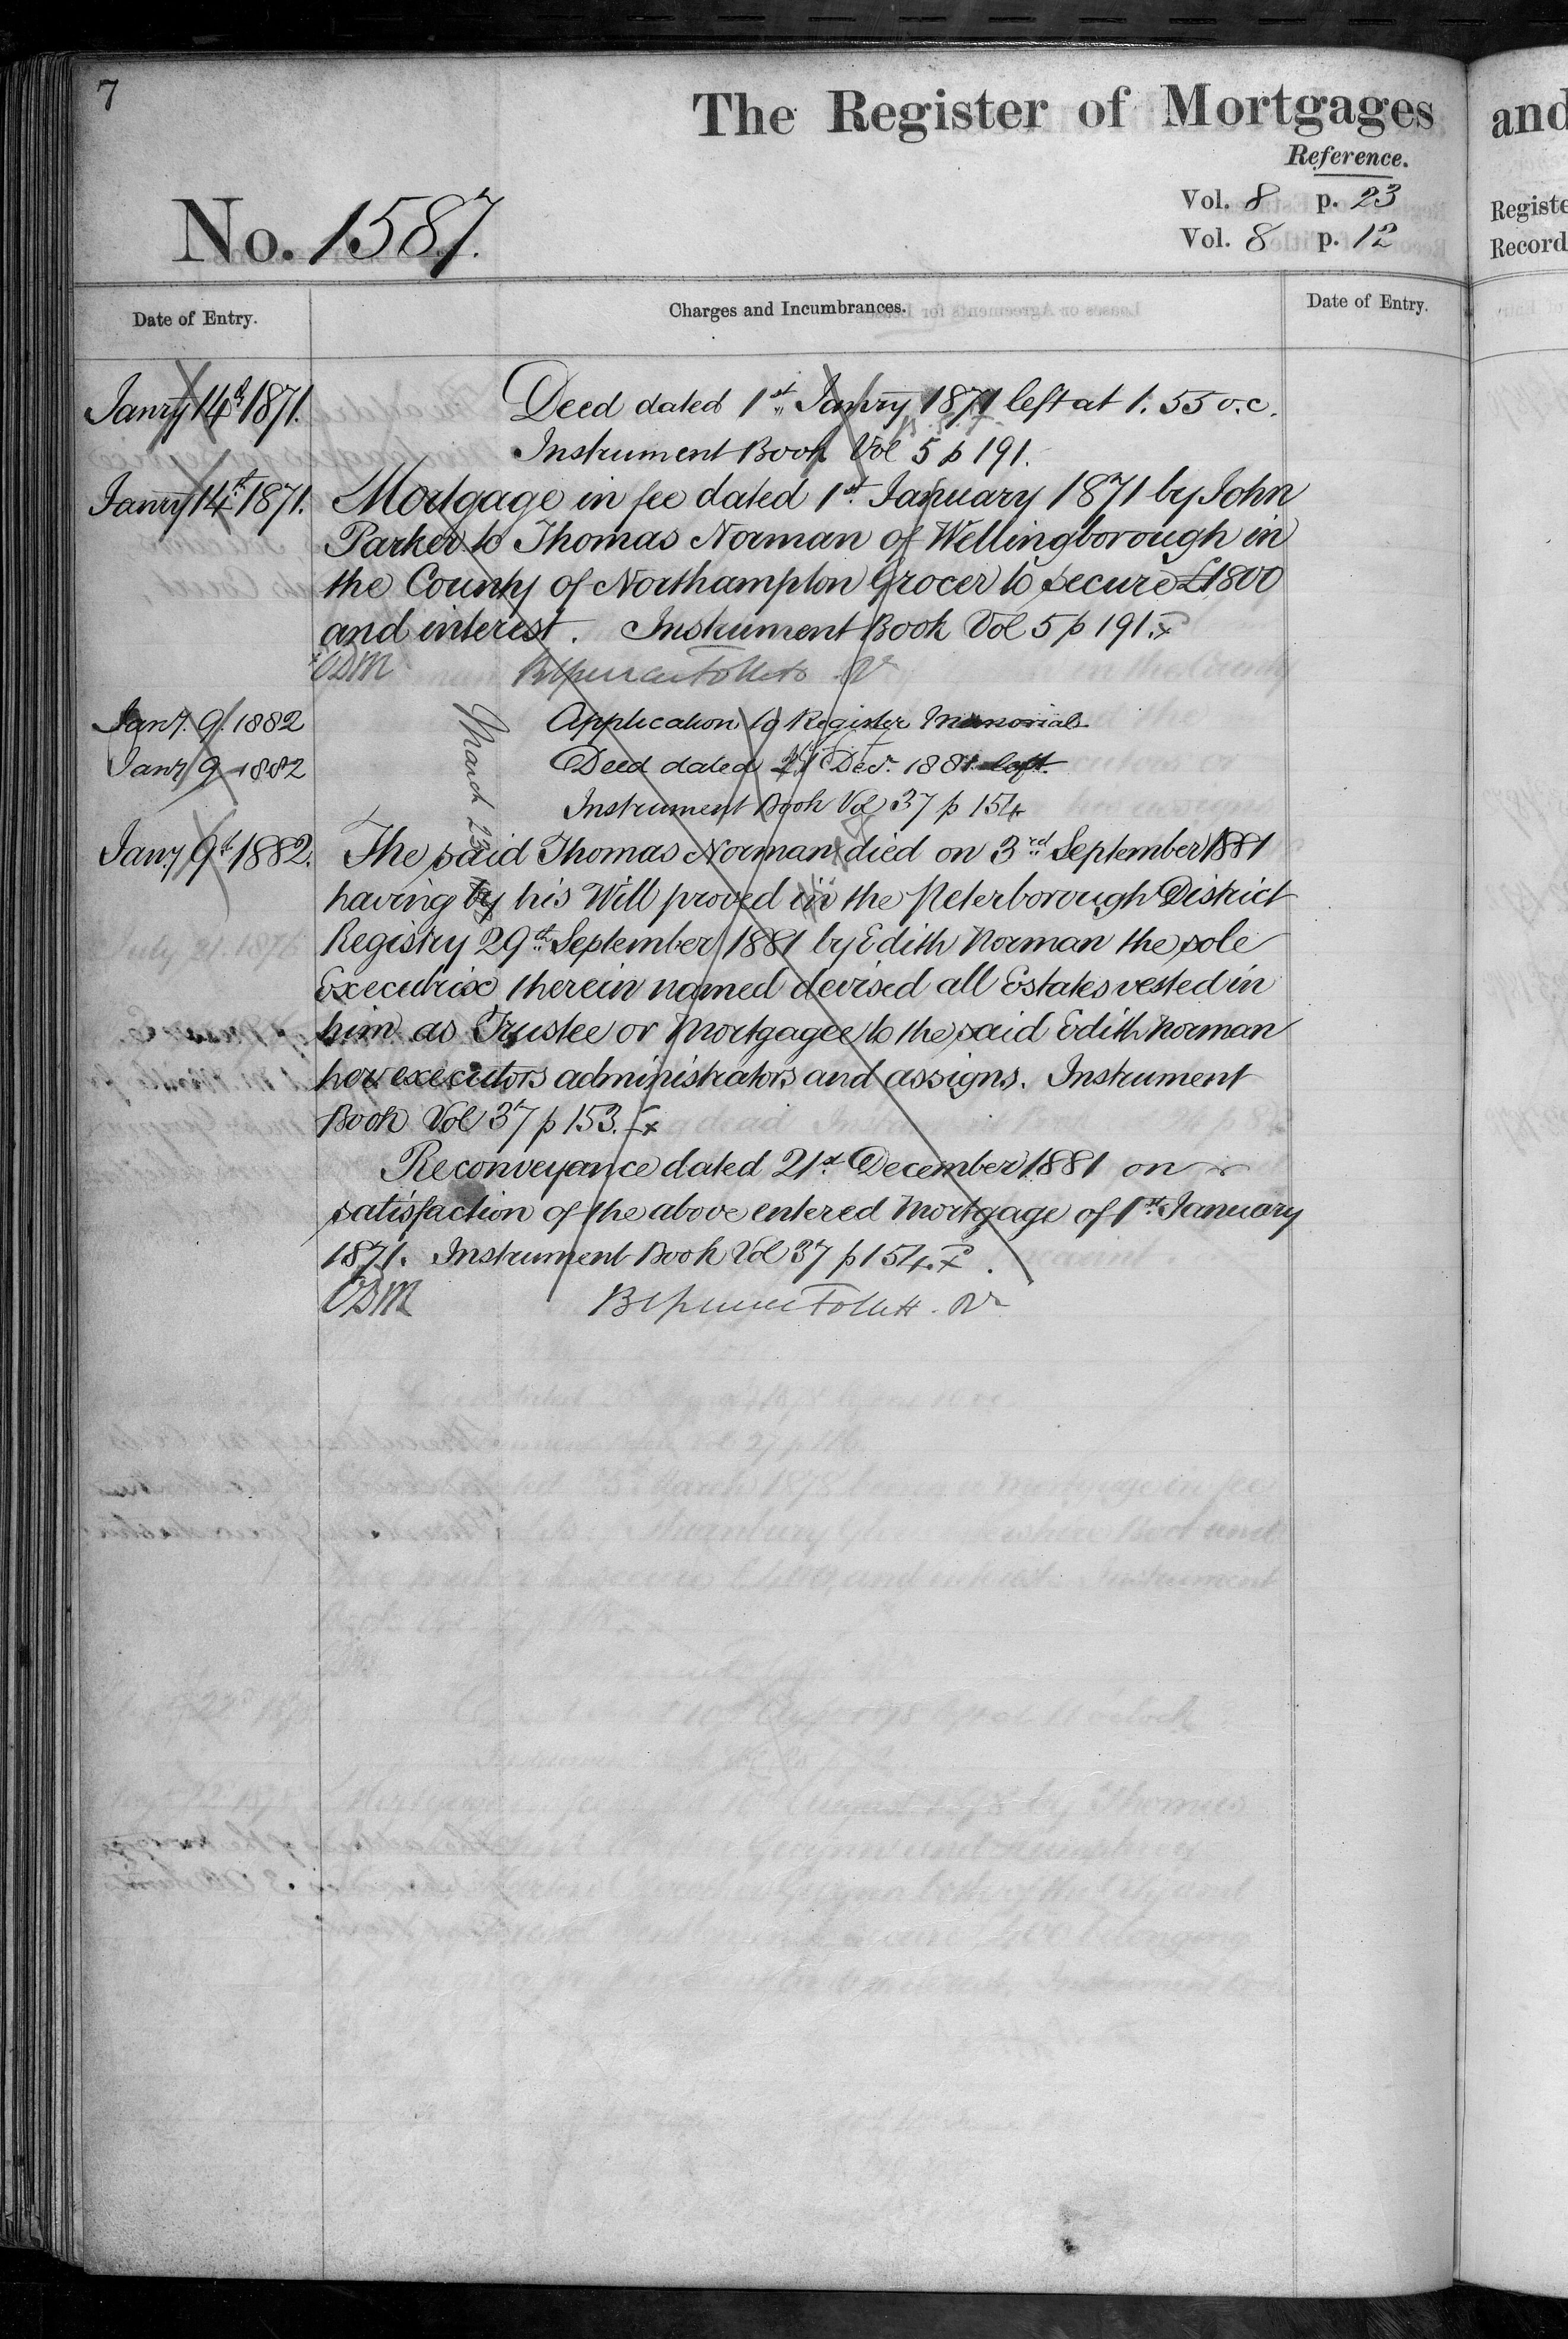 7
The Register of Mortgages
Reference.
Vol. 8 p. 23
Vol. 8 p. 12
No. 1587.
Date of Entry.
Charges and Incumbrances.
Date of Entry.
Janry 14th 1871.
Deed dated 1st Janry 1871 left at 1.55 o.c.
Instrument Book Vol 5 p 191.
Janry 14th 1871.
Mortgage in fee dated 1st January 1871 by John
Parker to Thomas Norman of Wellingborough in
the County of Northampton Grocer to secure £1800
and interest. Instrument Book Vol 5 p 191.
Jany. 9. 1882
Application to Register Memorial
Jany 9 1882
Deed dated 21 Decr. 1881 left.
Instrument Book Vol 37 p 154
March 23
Jany 9th 1882.
The said Thomas Norman died on 3rd September 1881
having by his Will proved in the Peterborough District
Registry 29th September 1881 by Edith Norman the sole
Executrix therein named devised all Estates vested in
him as Trustee or Mortgagee to the said Edith Norman
her executors administrators and assigns. Instrument
Book Vol 37 p 153.
Reconveyance dated 21st December 1881 on
satisfaction of the above entered Mortgage of 1st January
1871. Instrument Book Vol 37 p 154.
and
Registe
Record